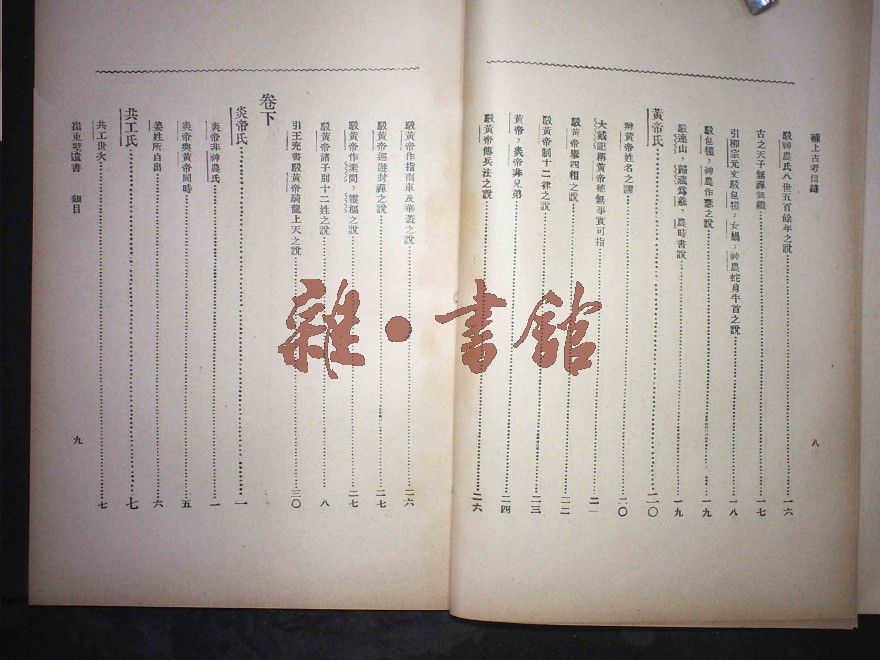 補上古考信錄
八
駁神農氏八世五百餘年之說 一六
古之天子無禪無繼 一七
引柳宗元文駁包犧，女媧，神農蛇身牛首之說 一八
駁包犧，神農作瑟之說 一九
駁連山，歸藏爲羲，農時書說 一九
黃帝氏 二〇
辨黃帝姓名之謬 二〇
大戴記稱黃帝德無事實可指 二一
駁黃帝舉四相之說 二二
駁黃帝制十二律之說 二三
黃帝，炎帝非兄弟 二四
駁黃帝傳兵法之說 二六
駁黃帝作指南車及華蓋之說 二六
駁黃帝巡遊封禪之說 二七
駁黃帝作素問，靈樞之說 二七
駁黃帝諸子別十二姓之說 八
引王充書駁黃帝騎龍上天之說 三〇
卷下
炎帝氏 一
炎帝非神農氏 一
炎帝與黃帝同時 五
姜姓所自出 六
共工氏 七
共工世次 七
崔東壁遺書 細目
九
雜·書館